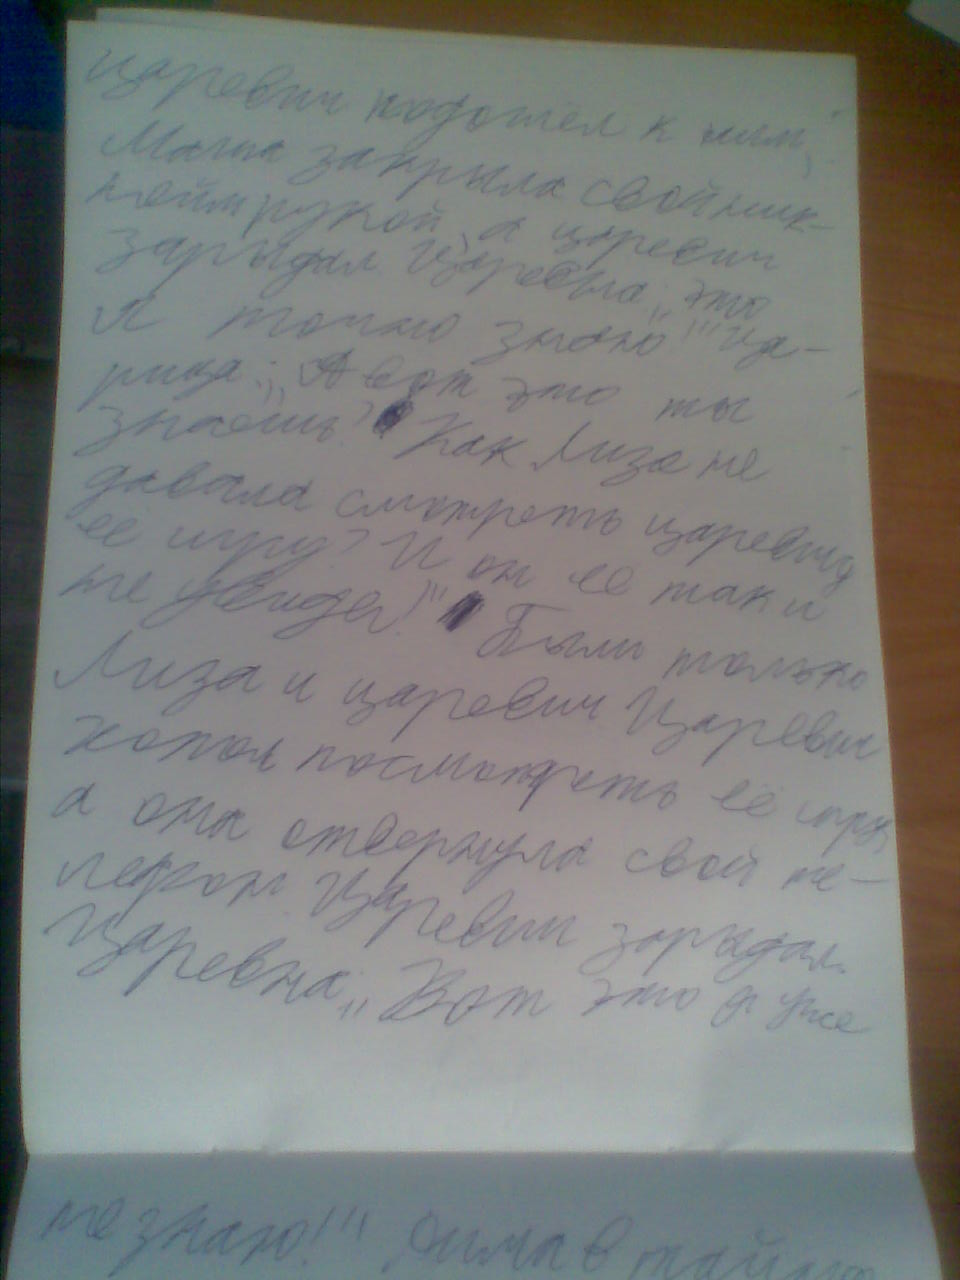 царевич подошёл к ним,
Маша закрыла свой ник-
нейм рукой, а царевич
зарыдал. Царевна: „это
я точно знаю!" Ца-
рица: „А вот это ты
знаешь? Как Лиза не
давала смотреть царевичу
её игру? И он её так и
не увидел)" Были только
Лиза и царевич Царевич
хотел посмотреть её игру,
а она отвернула свой те-
лефон Царевич зарыдал.
Царевна: „Вот это я уже
не знаю!" в тайную